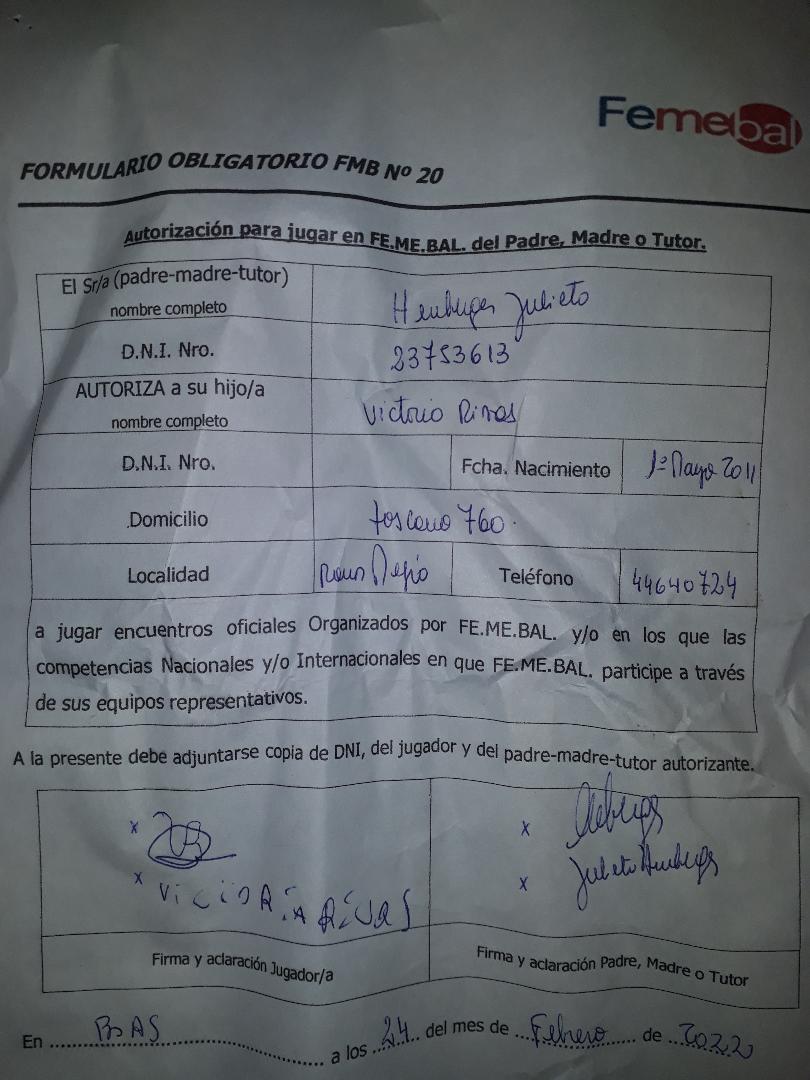 Femebal
FORMULARIO OBLIGATORIO FMB Nº 20
Autorización para jugar en FE.ME.BAL. del Padre, Madre o Tutor.
El Sr/a (padre-madre-tutor)
nombre completo
Julieta
D.N.I. Nro. 23753613
AUTORIZA a su hijo/a
nombre completo
Victoria Rivas
D.N.I. Nro. Fcha. Nacimiento 1º Mayo 2011
Domicilio 760.
Localidad Teléfono 44640724
a jugar encuentros oficiales Organizados por FE.ME.BAL. y/o en los que las
competencias Nacionales y/o Internacionales en que FE.ME.BAL. participe a través
de sus equipos representativos.
A la presente debe adjuntarse copia de DNI, del jugador y del padre-madre-tutor autorizante.
x x
x VICTORIA RIVAS x Julieta
Firma y aclaración Jugador/a Firma y aclaración Padre, Madre o Tutor
En Bs AS a los 24 del mes de Febrero de 2022